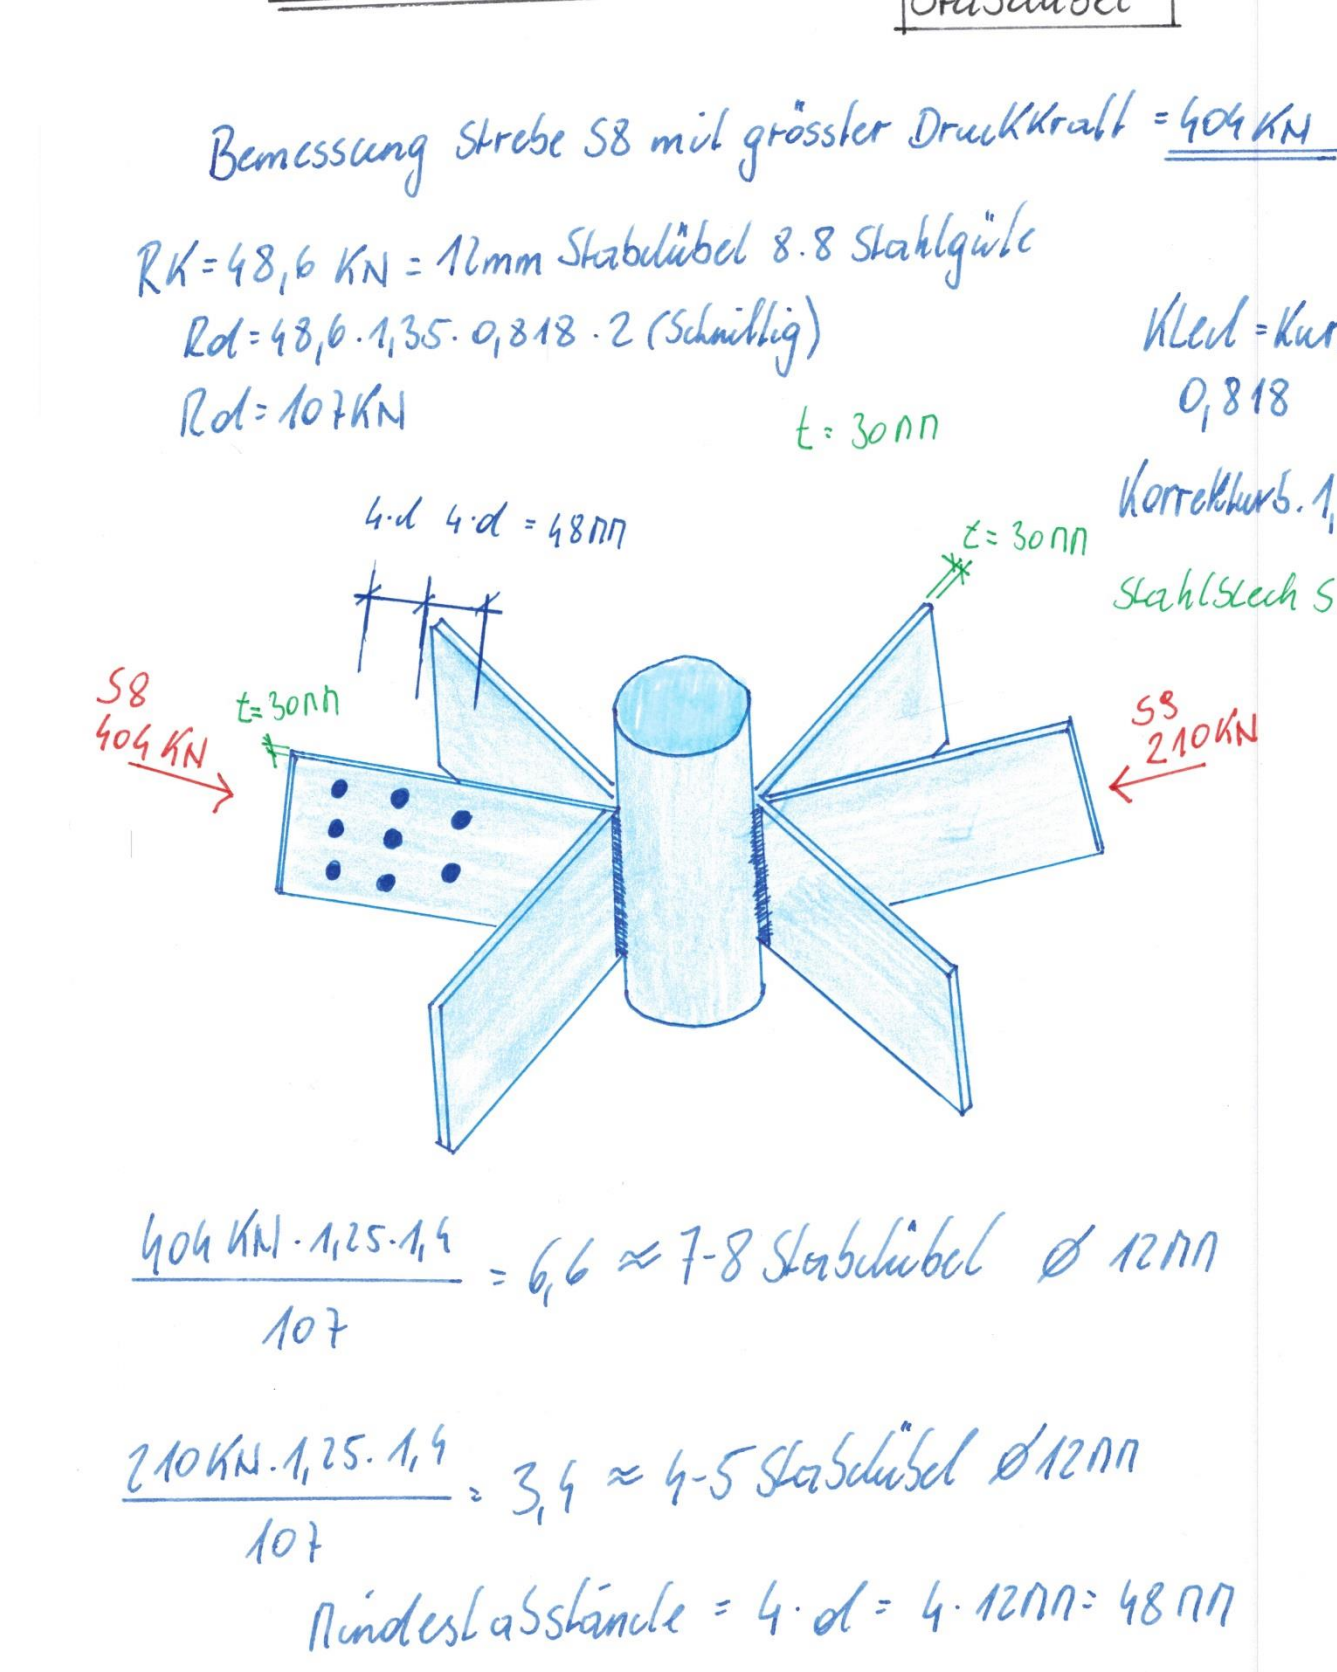 Stabdübel
Bemessung Strebe S8 mit grösster Druckkraft = 404 KN
RK = 48,6 KN = 12mm Stabdübel 8.8 Stahlgüte
Rd = 48,6 · 1,35 · 0,818 · 2 (Schnittig)
Rd = 107 KN
KLed = Kur
0,818
t = 30mm
Korrekturb. 1,
4·d 4·d = 48mm
t = 30mm
Stahlblech S
S8
404 KN
t = 30mm
S9
210 KN
404 KN · 1,25 · 1,4
= 6,6 ≈ 7-8 Stabdübel Ø 12mm
107
210 KN · 1,25 · 1,4
= 3,4 ≈ 4-5 Stabdübel Ø 12mm
107
Mindestabstände = 4 · d = 4 · 12mm = 48mm